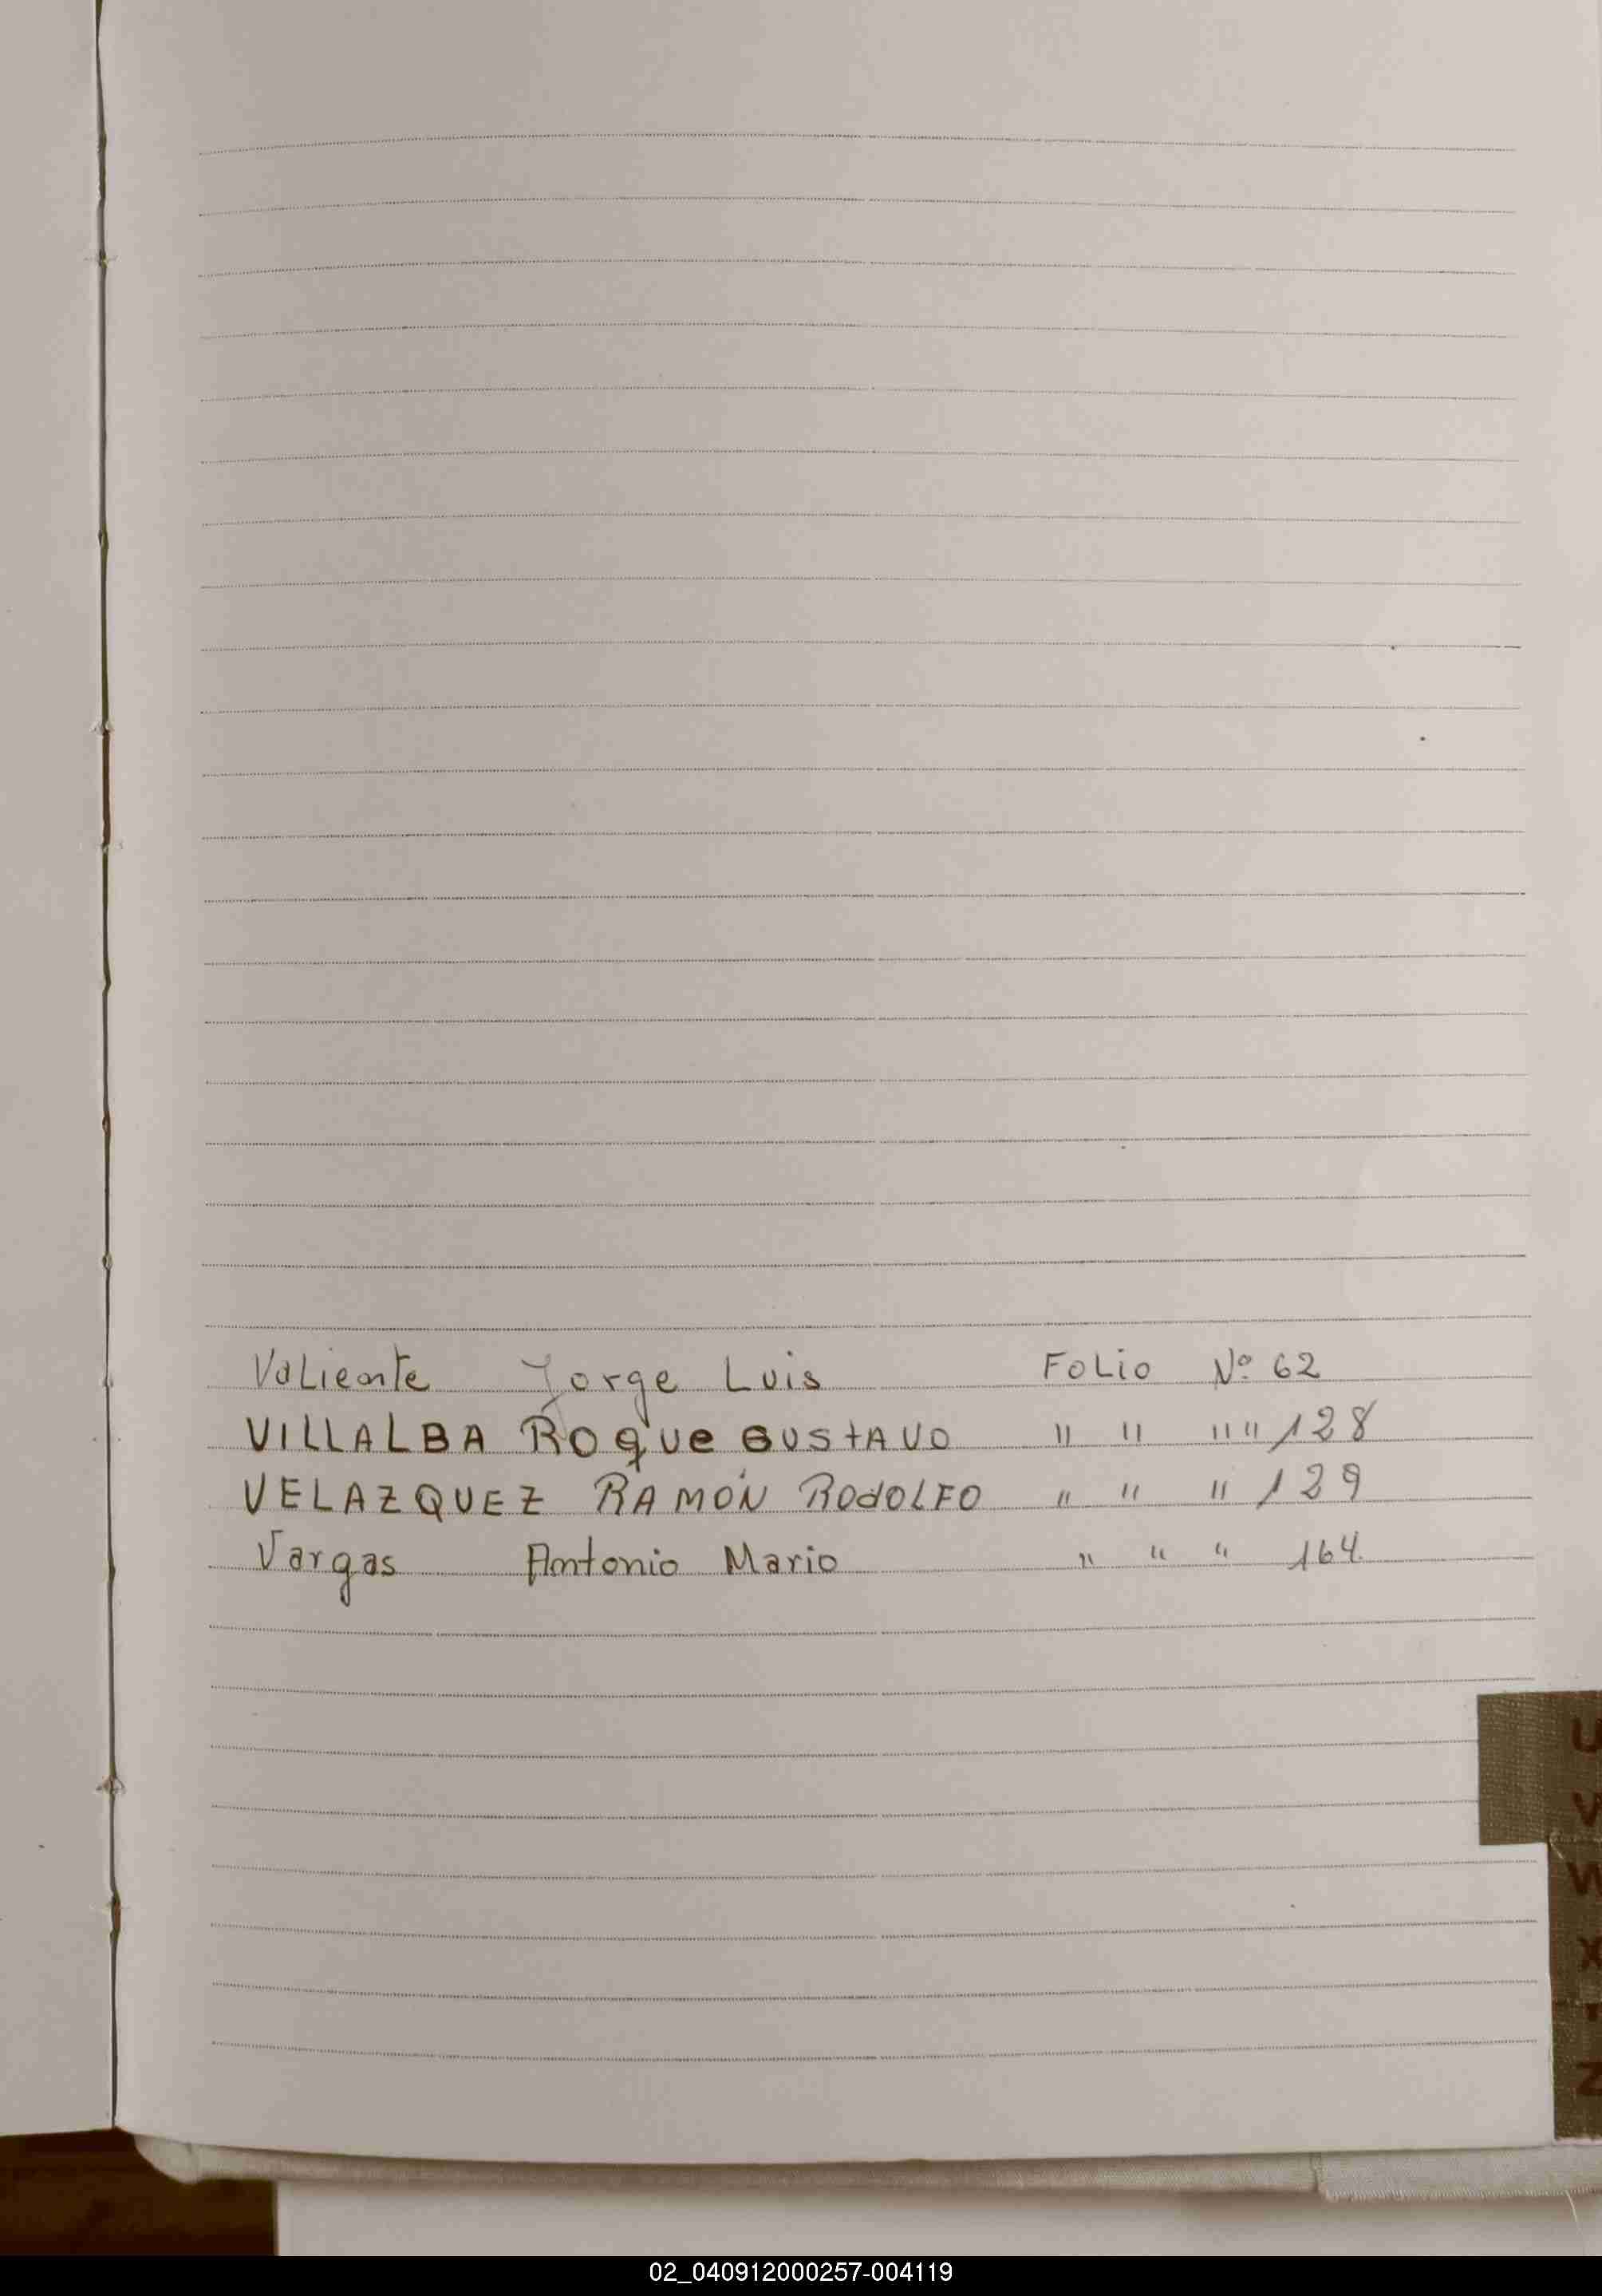 Valiente Jorge Luis Folio Nº 62
VILLALBA ROQUE GUSTAVO " " " " 128
VELAZQUEZ RAMÓN RODOLFO " " " 129
Vargas Antonio Mario " " " 164
U
V
W
X
Z
02_040912000257-004119